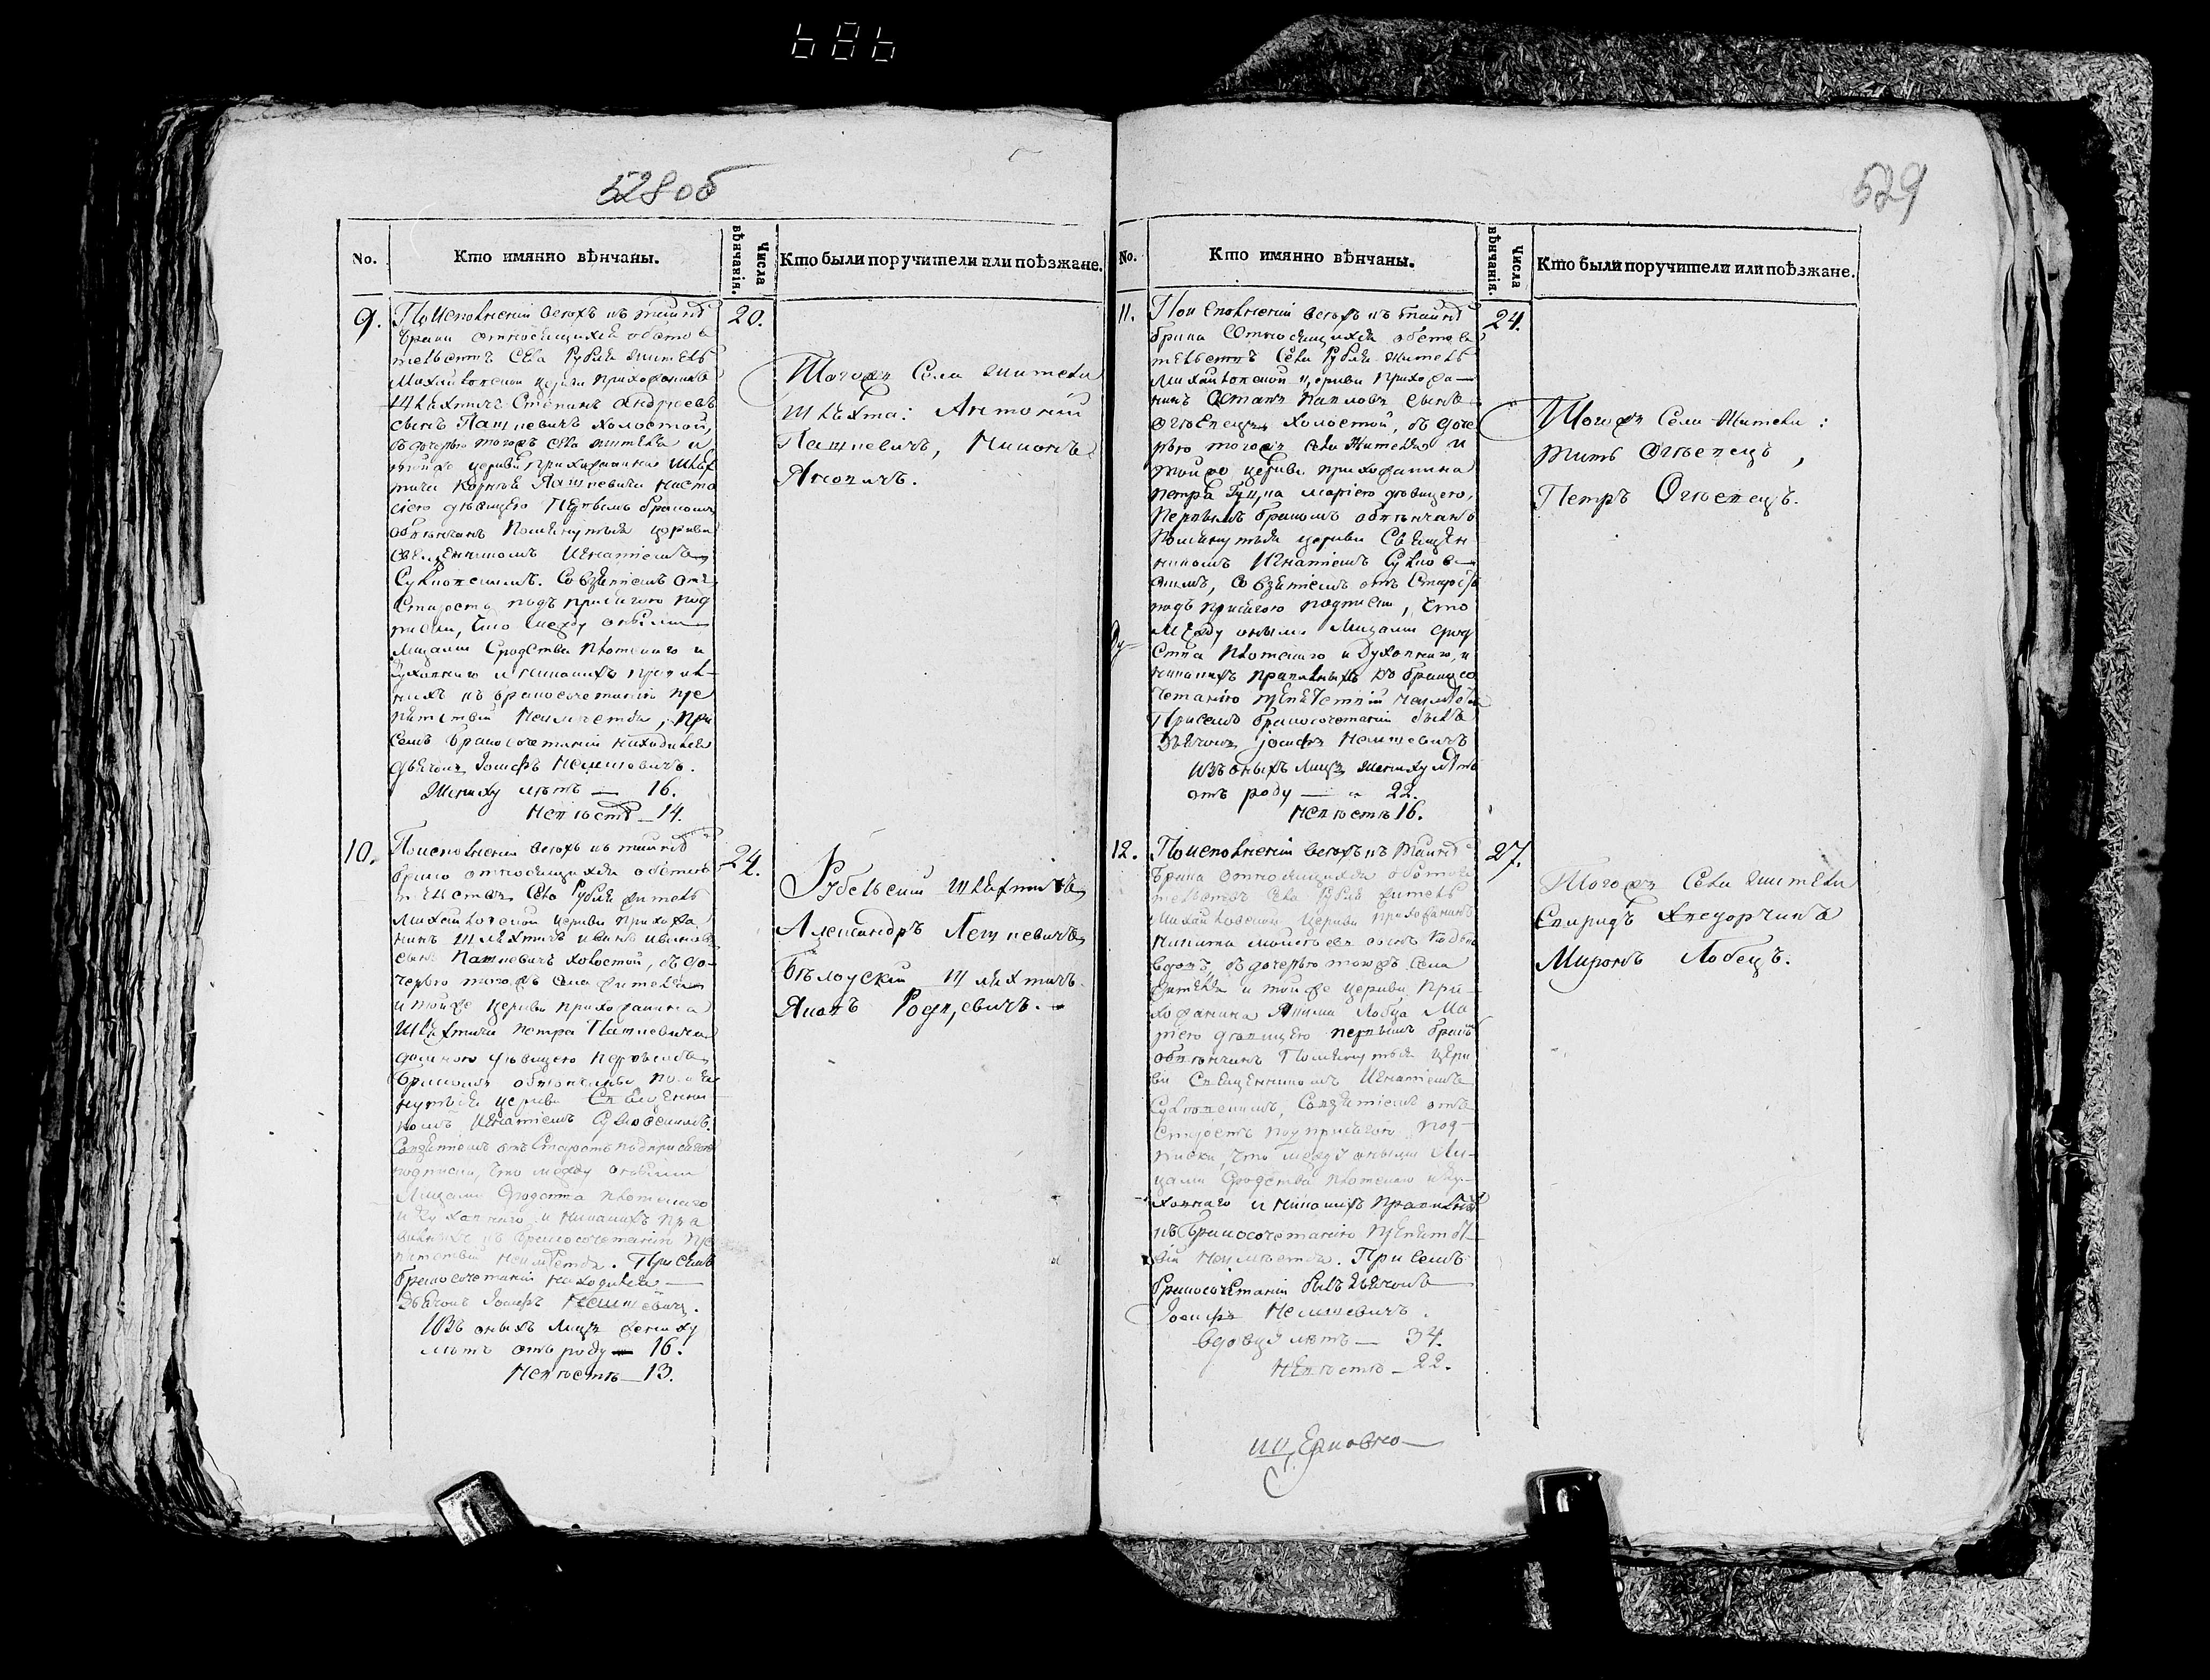 686
528 об
529
No.
Кто имянно вѣнчаны.
Числа вѣнчанія.
Кто были поручители или поѣзжане.
9.
По исполненіи всѣхъ къ тайнѣ
брака относящихся обстоя
тельствъ Села Рубля житель
Михайловской церкви прихожанинъ
Шляхтичъ Степанъ Андреевъ
сынъ Пашкевичъ холостой,
съ дочерью тогожъ села жителя и
тойже церкви прихожанина Шлях
тича Корнѣя Пашкевича Наста
сіею дѣвицею Первымъ бракомъ
обвѣнчанъ Помянутыя церкви
Священникомъ Игнатіемъ
Сулковскимъ. Со взятіемъ отъ
Старосты подъ присягою под
писки, что между оными
Лицами Сродства Плотскаго и
Духовнаго и никакихъ правиль
ныхъ къ бракосочетанію пре
пятствій неимѣется, При
семъ бракосочетаніи находился
дьячокъ Іосифъ Немшевичъ.
Жениху лѣтъ — 16.
Невѣстѣ — 14.
20.
Тогожъ Села жители
шляхта: Антоній
Пашкевичъ,
10.
По исполненіи всѣхъ къ тайнѣ
брака относящихся обстоя
тельствъ Села Рубля житель
Михайловской церкви прихожа
нинъ шляхтичъ Иванъ Ивановъ
сынъ Пашкевичъ холостой, съ до
черью тогожъ села жителя
и тойже церкви прихожанина
Шляхтича Петра Пашкевича
дѣвицею Первымъ
бракомъ обвѣнчаны помя
нутыя церкви Священни
комъ Игнатіемъ Сулковскимъ.
Совзятіемъ отъ Старосты подъ присягою
подписки, что между оными
Лицами Сродства плотскаго
и духовнаго и никакихъ пра
вильныхъ къ бракосочетанію пре
пятствій неимѣется. При семъ
бракосочетаніи находился
дьячокъ Іосифъ Немшевичъ.
Изъ оныхъ лицъ жениху
лѣтъ отъ роду — 16.
Невѣстѣ — 13.
24.
Рубельскій шляхтичъ
Александръ Пашкевичъ
шляхтичъ
No.
Кто имянно вѣнчаны.
Числа вѣнчанія.
Кто были поручители или поѣзжане.
11.
По исполненіи всѣхъ къ тайнѣ
брака Относящихся обстоя
тельствъ Села Рубля житель
Михайловской церкви прихожа
нинъ Остапъ Павловъ сынъ
Огіевецъ холостой, съ доче
рью тогожъ села жителя и
тойже церкви прихожанина
Петра Маріею дѣвицею,
Первымъ бракомъ обвѣнчанъ
Помянутыя церкви Священ
никомъ Игнатіемъ Сулков
скимъ, Со взятіемъ отъ Старостъ
подъ присягою подписки, что
между оными Лицами срод
ства плотскаго и Духовнаго, и
никакихъ правильныхъ къ бракосо
четанію препятствій неимѣется
При семъ бракосочетаніи былъ
Дьячокъ Іосифъ Немшевичъ
Изъ оныхъ лицъ жениху лѣтъ
отъ роду — 22.
Невѣстѣ 16.
24.
Тогожъ Села Жители:
Титъ Огіевецъ,
Петръ Огіевецъ.
12.
По исполненіи всѣхъ къ тайнѣ
брака относящихся обстоя
тельствъ Села Рубля житель
Михайловской церкви прихожанинъ
Никита Моисѣевъ сынъ
вдовъ, съ дочерью тогожъ села
жителя и тойже церкви при
хожанина Якима Лобца Ма
ріею дѣвицею первымъ бракомъ
обвѣнчанъ Помянутыя церк
ви Священникомъ Игнатіемъ
Сулковскимъ, Совзятіемъ отъ
Старостъ подъ присягою под
писки, что между оными Ли
цами Сродства плотскаго и ду
ховнаго и никакихъ правильныхъ
къ бракосочетанію препятст
вій неимѣется. При семъ
бракосочетаніи былъ дьячокъ
Іосифъ Немшевичъ.
вдовцу лѣтъ — 34.
Невѣстѣ — 22.
27.
Тогожъ Села жители
Спиридъ
Миронъ Лобецъ.